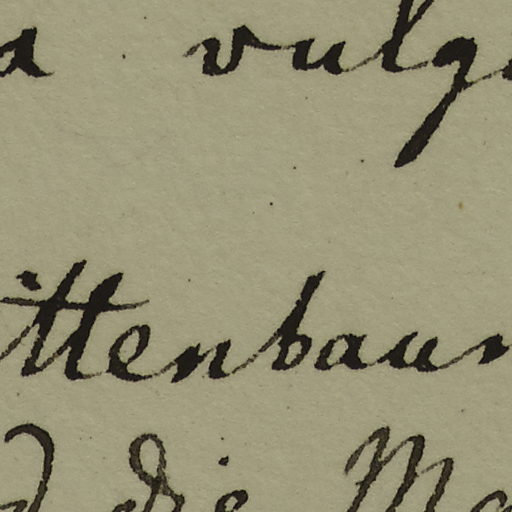 a vulg
ittenbaum
d die Ma